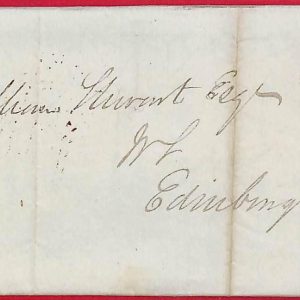 lliam Stewart Esqr
WS
Edinburg